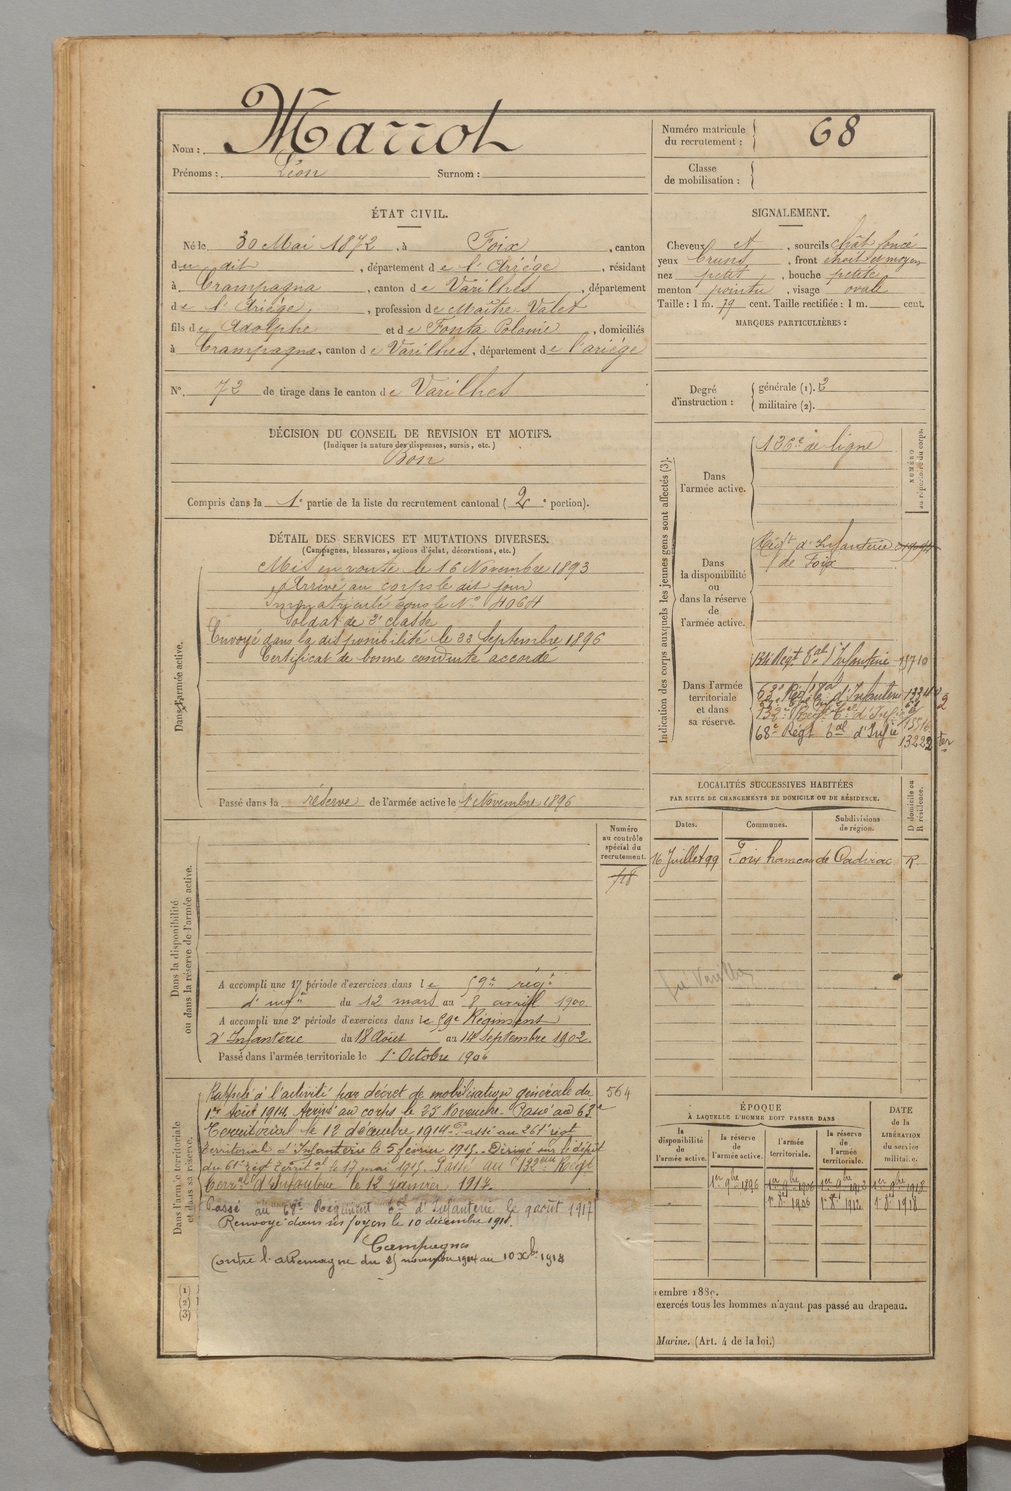 Nom : Marrot
Prénoms : Léon Surnom :
Numéro matricule du recrutement : 68
Classe de mobilisation :
ÉTAT CIVIL.
Né le 30 Mai 1872, à Foix, canton
du dit, département de l'Ariège, résidant
à Crampagna, canton de Varilhes, département
de l'Ariège, profession de Maître Valet
fils de Adolphe et de Fonta Polonie, domiciliés
à Crampagna, canton de Varilhes, département de l'ariège
N° 72 de tirage dans le canton de Varilhes
SIGNALEMENT.
Cheveux et, sourcils chât foncé
yeux bruns, front étroit et moyen
nez petit, bouche petite
menton pointu, visage ovale
Taille : 1 m. 79 cent. Taille rectifiée : 1 m. cent.
MARQUES PARTICULIÈRES :
Degré d'instruction : générale (1). 2
militaire (2).
DÉCISION DU CONSEIL DE REVISION ET MOTIFS.
(Indiquer la nature des dispenses, sursis, etc.)
Bon
Compris dans la 1e partie de la liste du recrutement cantonal (2e portion).
DÉTAIL DES SERVICES ET MUTATIONS DIVERSES.
(Campagnes, blessures, actions d'éclat, décorations, etc.)
Dans l'armée active.
Mis en route le 16 Novembre 1893
Arrivé au corps le dit jour
Immatriculé sous le N° 4064
Soldat de 2e classe
Envoyé dans la disponibilité le 22 Septembre 1896
Certificat de bonne conduite accordé
Passé dans la réserve de l'armée active le 1 Novembre 1896
Indication des corps auxquels les jeunes gens sont affectés (3).
NUMÉRO au répertoire du corps.
Dans l'armée active.
136e de ligne
Dans la disponibilité ou dans la réserve de l'armée active.
Régt d'Infanterie
de Foix
Dans l'armée territoriale et dans sa réserve.
134 Régt tal d'Infanterie
63e Régt tal d'Infanterie
132e Régt tal d'Infie
68e Régt tal d'Infie 13222 ter
LOCALITÉS SUCCESSIVES HABITÉES
PAR SUITE DE CHANGEMENTS DE DOMICILE OU DE RÉSIDENCE.
Dates. Communes. Subdivisions de région. D domicile ou R résidence.
16 Juillet 99 Foix hameau de Cadirac R
Dans la disponibilité ou dans la réserve de l'armée active.
Numéro au contrôle spécial du recrutement.
718
A accompli une 1e période d'exercices dans le 59e régt
d'infie du 12 mars au 8 avril 1900
A accompli une 2e période d'exercices dans le 59e Régiment
d'Infanterie du 18 Août au 14 Septembre 1902.
Passé dans l'armée territoriale le 1 Octobre 1906
Dans l'armée territoriale et dans sa réserve.
Rappelé à l'activité par décret de mobilisation générale du 564
1er Août 1914 Arrivé au corps le 25 Novembre. Passé au 63e
Territorial le 12 décembre 1914. Passé au 261e régt
territorial d'Infanterie le 5 février 1915. Dirigé sur le dépôt
du 61e régt territal le 17 mai 1915. Passé au 132ème Régt
Terral d'Infanterie le 12 janvier 1917
Passé au 68e Régiment tal d'Infanterie le 9 août 1917
Renvoyé dans ses foyers le 10 décembre 1918.
Campagnes
Contre l'allemagne du 25 novembre 1914 au 10 Xbre 1918
ÉPOQUE
À LAQUELLE L'HOMME DOIT PASSER DANS
la disponibilité de l'armée active. la réserve de l'armée active. l'armée territoriale. la réserve de l'armée territoriale. DATE de la LIBÉRATION du service militaire.
1er 9bre 1896 1er 9bre 1906 1er 9bre 1912 1er 9bre 1918
1er 8bre 1906 1er 8bre 1912 1er 8bre 1918
(1)
(2)
(3)
embre 1889.
exercés tous les hommes n'ayant pas passé au drapeau.
Marine. (Art. 4 de la loi.)